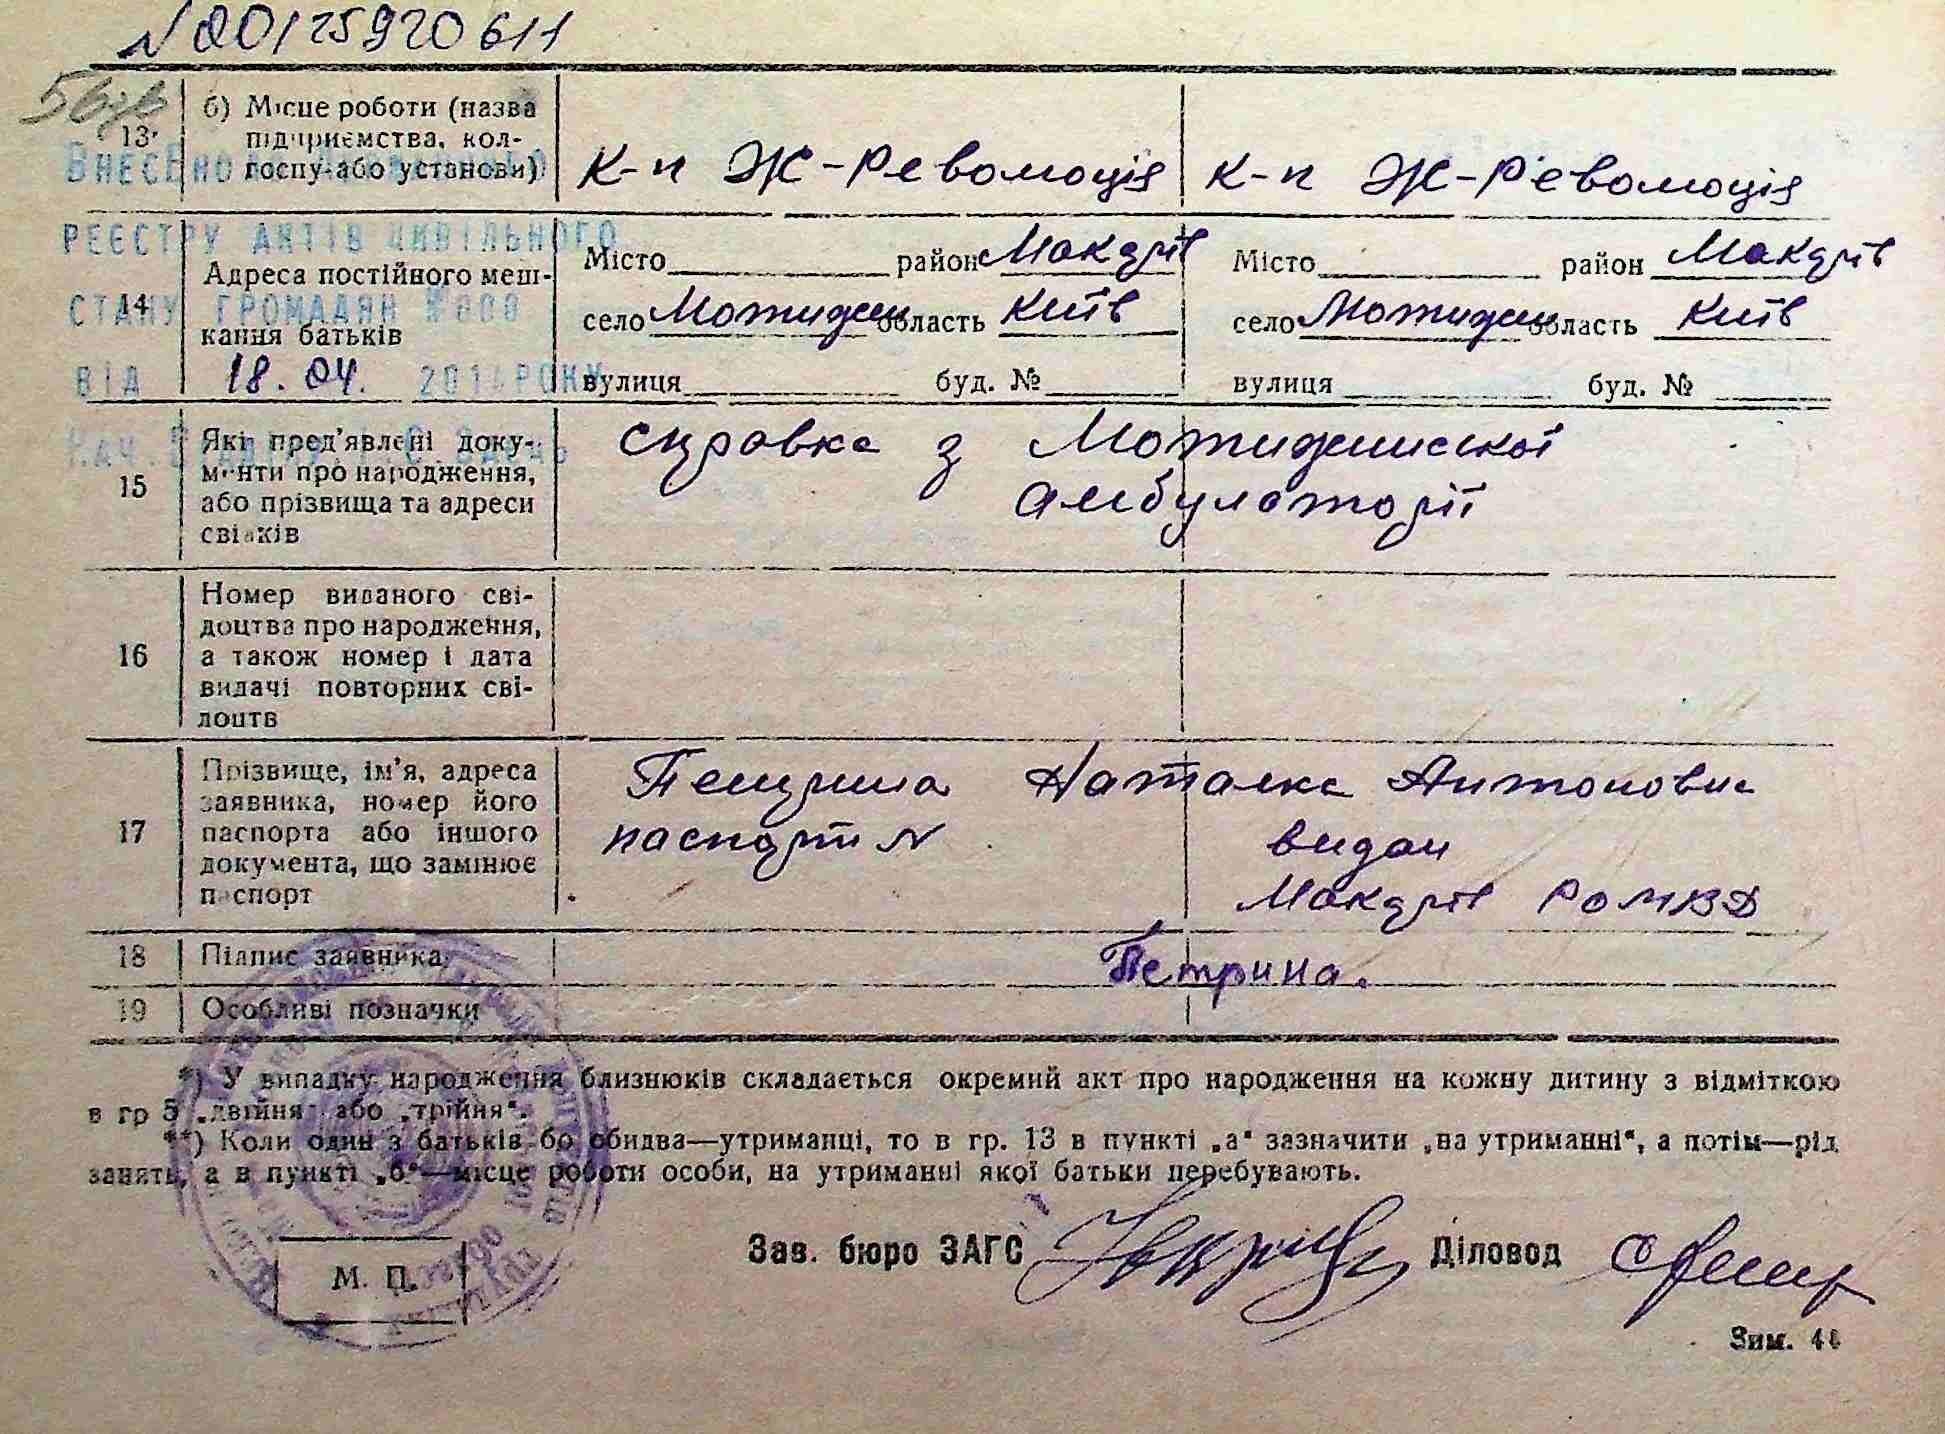 N 00125920611
13
б) Місце роботи (назва
підприємства, кол-
госпу або установи)
К-п Ж-Революція
К-п Ж-Революція
ВНЕСЕНО ДО
РЕЄСТРУ АКТІВ ЦИВІЛЬНОГО
СТАНУ ГРОМАДЯН
ВІД 18.04. 2014 РОКУ
14
Адреса постійного меш-
кання батьків
Місто район Макарів
село Мотижин область Київ
вулиця буд. №
Місто район Макарів
село Мотижин область Київ
вулиця буд. №
15
Які пред'явлені доку-
менти про народження,
або прізвища та адреси
свідків
справка з Мотижинської
амбулаторії
16
Номер виданого сві-
доцтва про народження,
а також номер і дата
видачі повторних сві-
доцтв
17
Прізвище, ім'я, адреса
заявника, номер його
паспорта або іншого
документа, що замінює
паспорт
Петрина Наталка Антоновна
паспорт N видан
Макарів РОМВД
18
Підпис заявника
Петрина.
19
Особливі позначки
*) У випадку народження близнюків складається окремий акт про народження на кожну дитину з відміткою
в гр 5 „двійня“ або „трійня“.
**) Коли один з батьків бо обидва—утриманці, то в гр. 13 в пункті „а“ зазначити „на утриманні“, а потім—рід
занять, а в пункті „б“—місце роботи особи, на утриманні якої батьки перебувають.
М. П.
Зав. бюро ЗАГС
Діловод
Зим. 44